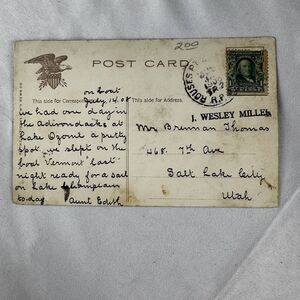 200
POST CARD
ROUSES P
R.P.O.
This side for Correspon
This side for Address.
on boat
July, 14.08
we had one day in
the Adirondacks at
Lake Ozonia a pretty
spot, we slept on the
boat "Vermont" last
night ready for a sail
on Lake Champlain
to-day
Aunt Edith
J. WESLEY MILLER
Mr Brennan Thomas
468. 7th Ave
Salt Lake City
Utah